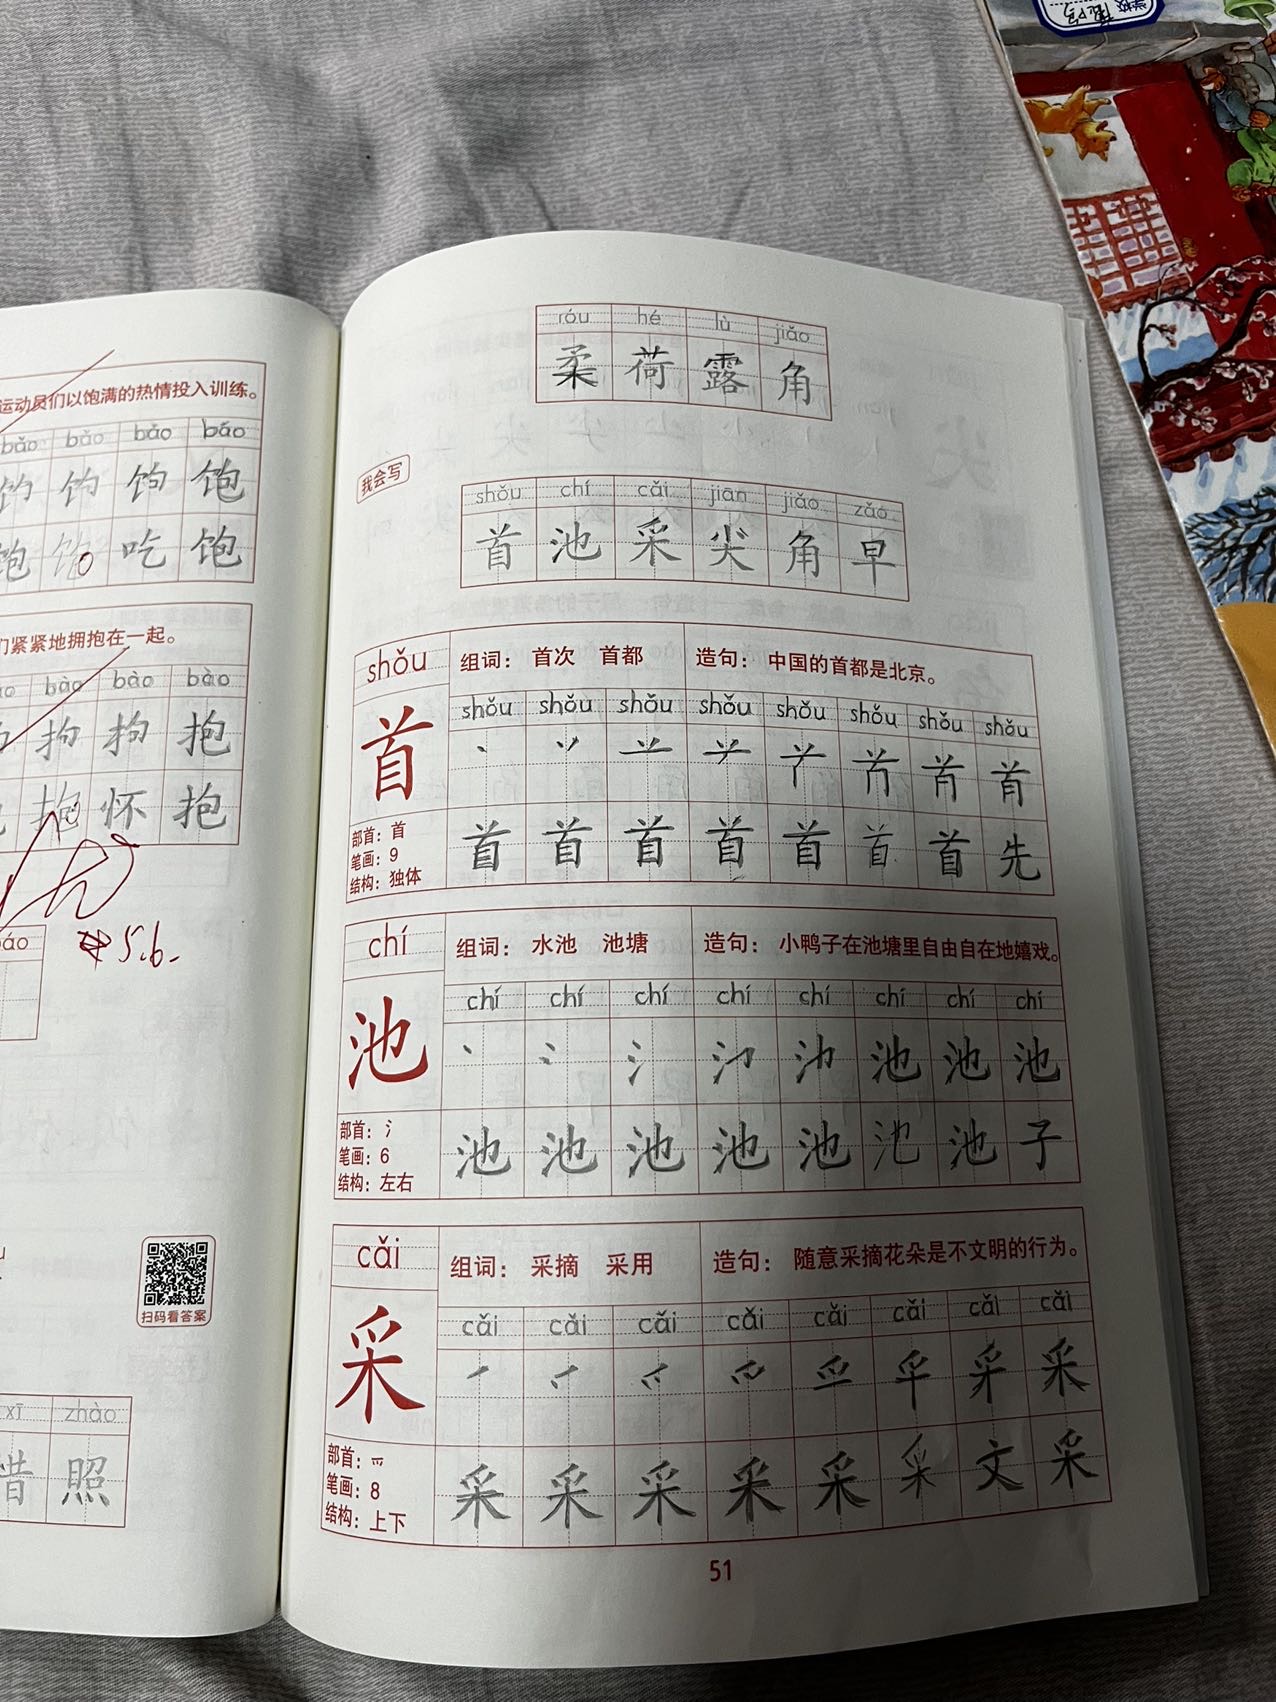 运动员们以饱满的热情投入训练。
bǎo bǎo bǎo bǎo
饱
饱 吃 饱
们紧紧地拥抱在一起。
bào bào bào
抱
抱 怀 抱
5.6.
扫码看答案
xī zhào
惜 照
róu hé lù jiǎo
柔 荷 露 角
我会写
shǒu chí cǎi jiān jiǎo zǎo
首 池 采 尖 角 早
shǒu 组词：首次 首都 造句：中国的首都是北京。
shǒu shǒu shǒu shǒu shǒu shǒu shǒu shǒu
首
部首：首
笔画：9
结构：独体
首 首 首 首 首 首 首 先
chí 组词：水池 池塘 造句：小鸭子在池塘里自由自在地嬉戏。
chí chí chí chí chí chí chí chí
池 池 池 池
部首：氵
笔画：6
结构：左右
池 池 池 池 池 池 池 子
cǎi 组词：采摘 采用 造句：随意采摘花朵是不文明的行为。
cǎi cǎi cǎi cǎi cǎi cǎi cǎi cǎi
采 采
部首：爫
笔画：8
结构：上下
采 采 采 采 采 采 文 采
51